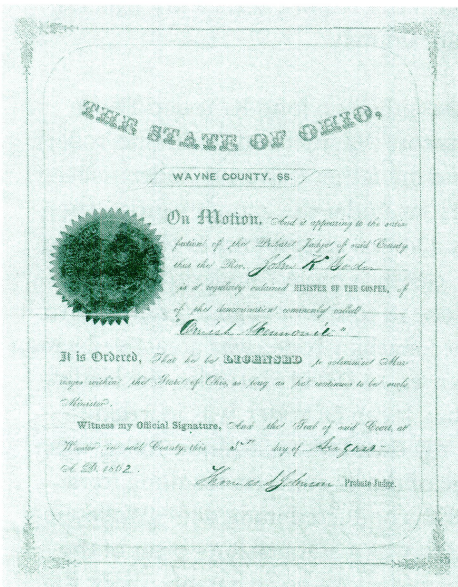 THE STATE OF OHIO,
WAYNE COUNTY, SS.
On Motion, And it appearing to the satis-
faction of the Probate Judge of said County
that the Rev. John K
is a regularly ordained MINISTER OF THE GOSPEL, of
of the denomination commonly called
"Omish Mennonite"
It is Ordered, That he be LICENSED to solemnize Mar-
riages within the State of Ohio, so long as he continues to be such
Minister.
Witness my Official Signature, And the Seal of said Court, at
Wooster in said County, this 5th day of August
A. D. 1862.
Thomas S Johnson Probate Judge.